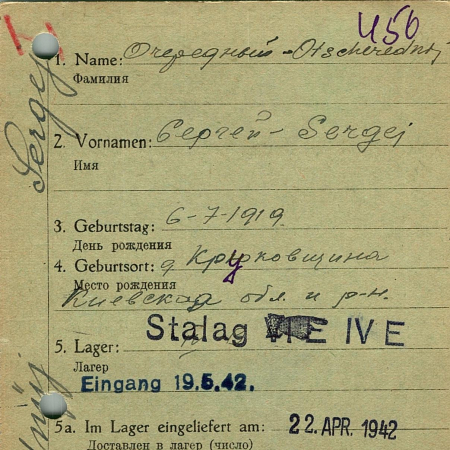 456
1. Name: Очередный - Otscherednyj
Фамилия
Sergej
2. Vornamen: Сергей - Sergej
Имя
3. Geburtstag: 6-7-1919
День рождения
4. Geburtsort: д Крюковщина
Место рождения
Киевской обл. и р-н.
Stalag IV E
5. Lager:
Лагер
Eingang 19.5.42.
5a. Im Lager eingeliefert am: 22. APR. 1942
Доставлен в лагер (число)